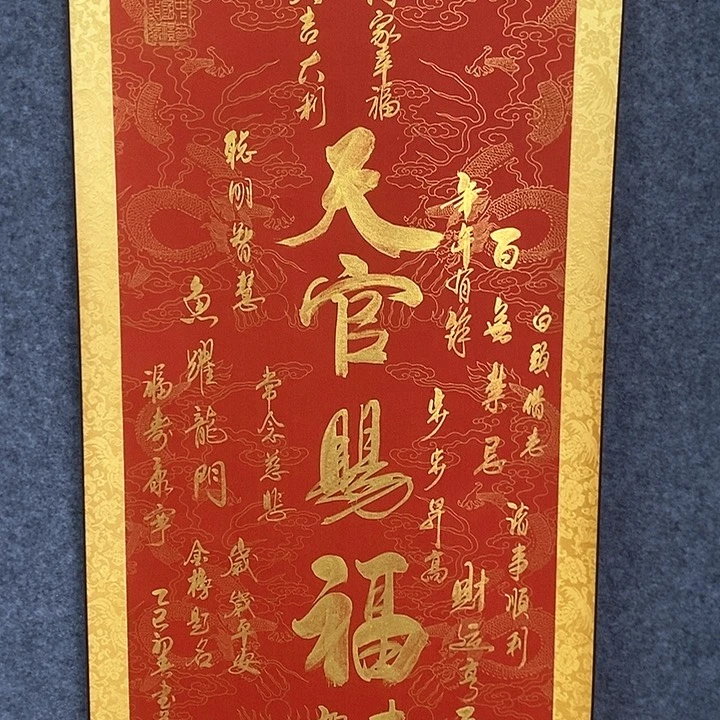 白頭偕老
諸事順利
百無禁忌
年年有餘
財运亨
步步昇高
闔家幸福
天官賜福
大吉大利
常念慈悲
聰明智慧
歲歲平安
魚躍龍門
金榜題名
福壽康寧
乙巳初春書